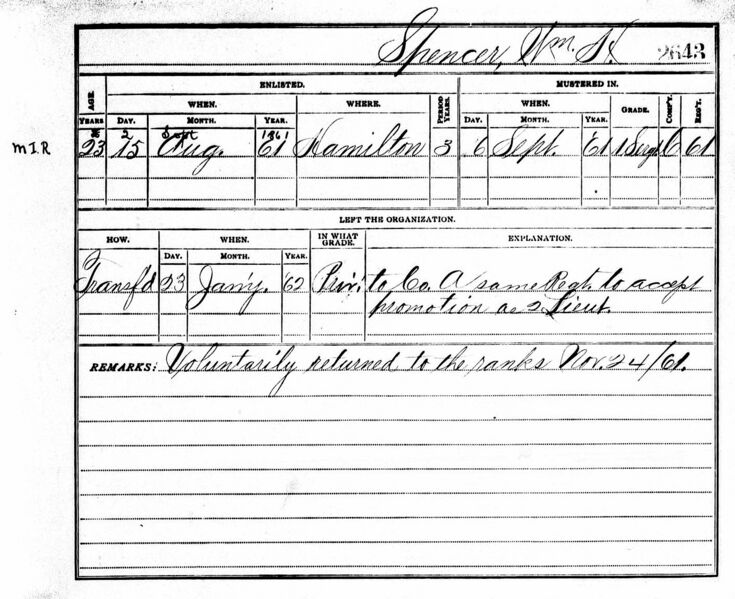 Spencer, Wm. H. 2643
ENLISTED. MUSTERED IN.
AGE. WHEN. WHERE. PERIOD YEARS. WHEN. GRADE. COMP'Y. REG'T.
YEARS DAY. MONTH. YEAR. DAY. MONTH. YEAR.
2 Sept 1861
M I R 23 15 Aug. 61 Hamilton 3 6 Sept. 61 1 Sergt C 61
LEFT THE ORGANIZATION.
HOW. WHEN. IN WHAT GRADE. EXPLANATION.
DAY. MONTH. YEAR.
Transf'd 23 Jan'y. '62 Priv. to Co. A same Regt. to accept
promotion as 2 Lieut.
REMARKS: Voluntarily returned to the ranks Nov. 24/61.